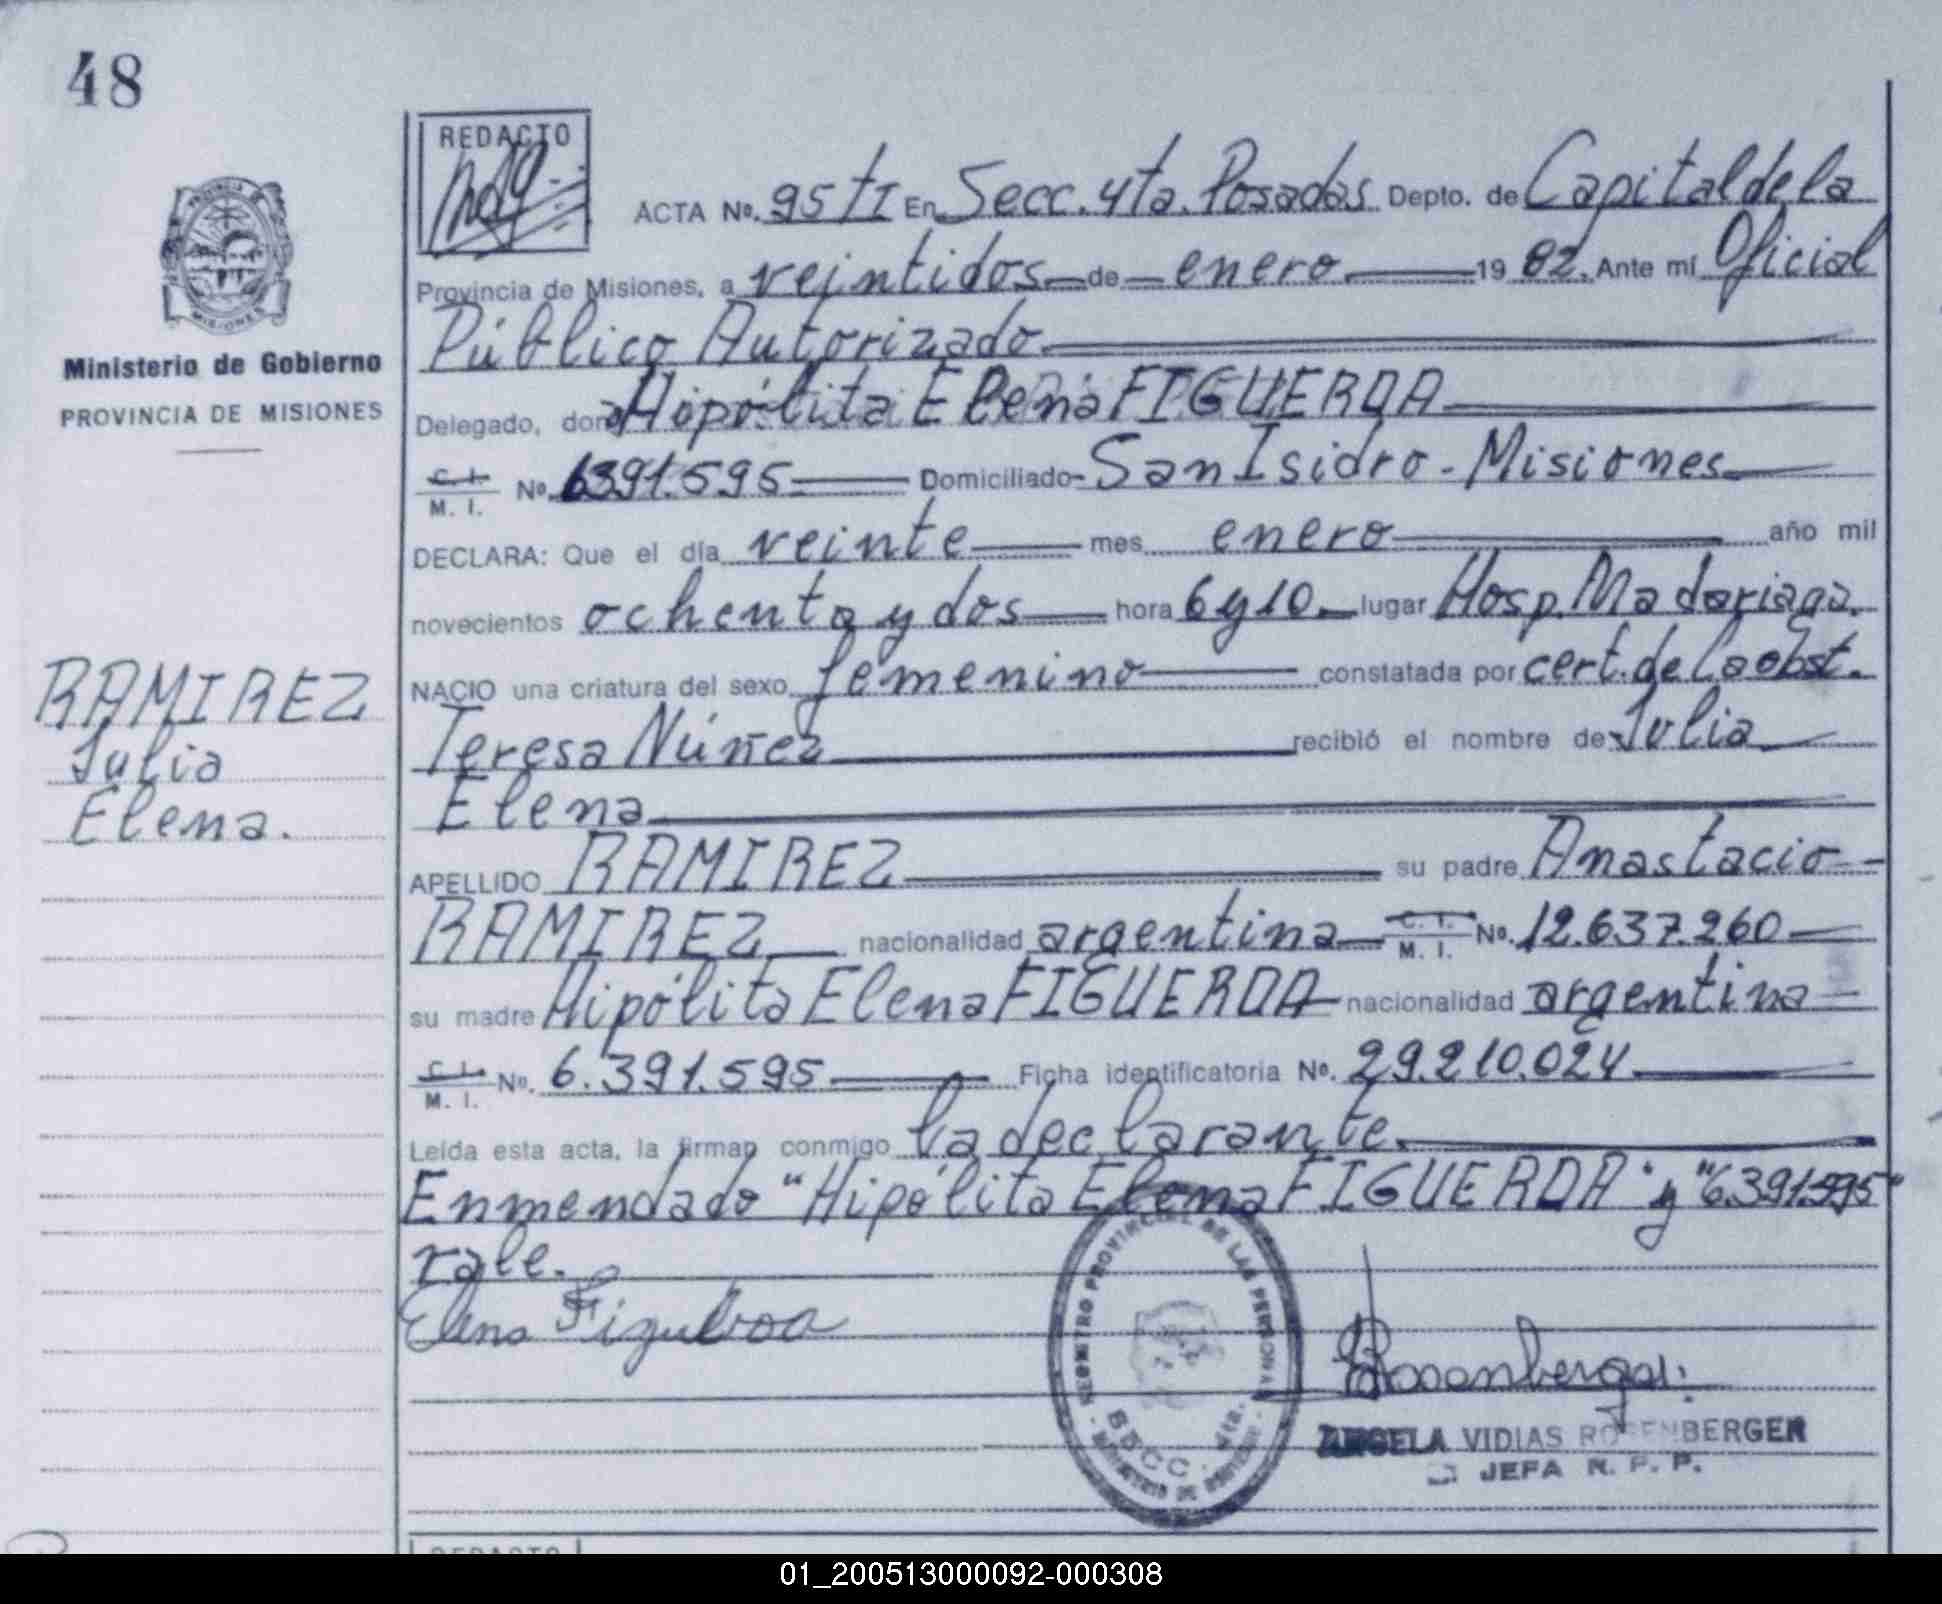 48
REDACTO
ACTA No. 95 t I En Secc. 4ta. Posadas Depto. de Capital de la
Provincia de Misiones, a veintidos de enero 19 82. Ante mí Oficial
Público Autorizado
Ministerio de Gobierno
PROVINCIA DE MISIONES
Delegado, doña Hipólita Elena FIGUEROA
C. I. M. I. No. 6391.595 Domiciliado San Isidro - Misiones
DECLARA: Que el día veinte mes enero año mil
novecientos ochenta y dos hora 6 y 10 lugar Hosp. Madariaga.
NACIO una criatura del sexo femenino constatada por cert. de la obst.
Teresa Núñez recibió el nombre de Julia
Elena
RAMIREZ
Julia
Elena.
APELLIDO RAMIREZ su padre Anastacio
RAMIREZ nacionalidad argentina C. I. M. I. No. 12.637.260
su madre Hipólita Elena FIGUEROA nacionalidad argentina
C. I. M. I. No. 6.391.595 Ficha identificatoria No. 29.210.024
Leída esta acta, la firman conmigo la declarante.
Enmendado "Hipólita Elena FIGUEROA" y "6.391.595"
vale.
Elena Figueroa
REGISTRO PROVINCIAL DE LAS PERSONAS
SECC. 4ta.
Rosenberger
ANGELA VIDIAS ROSENBERGER
JEFA R. P. P.
REDACTO
01_200513000092-000308